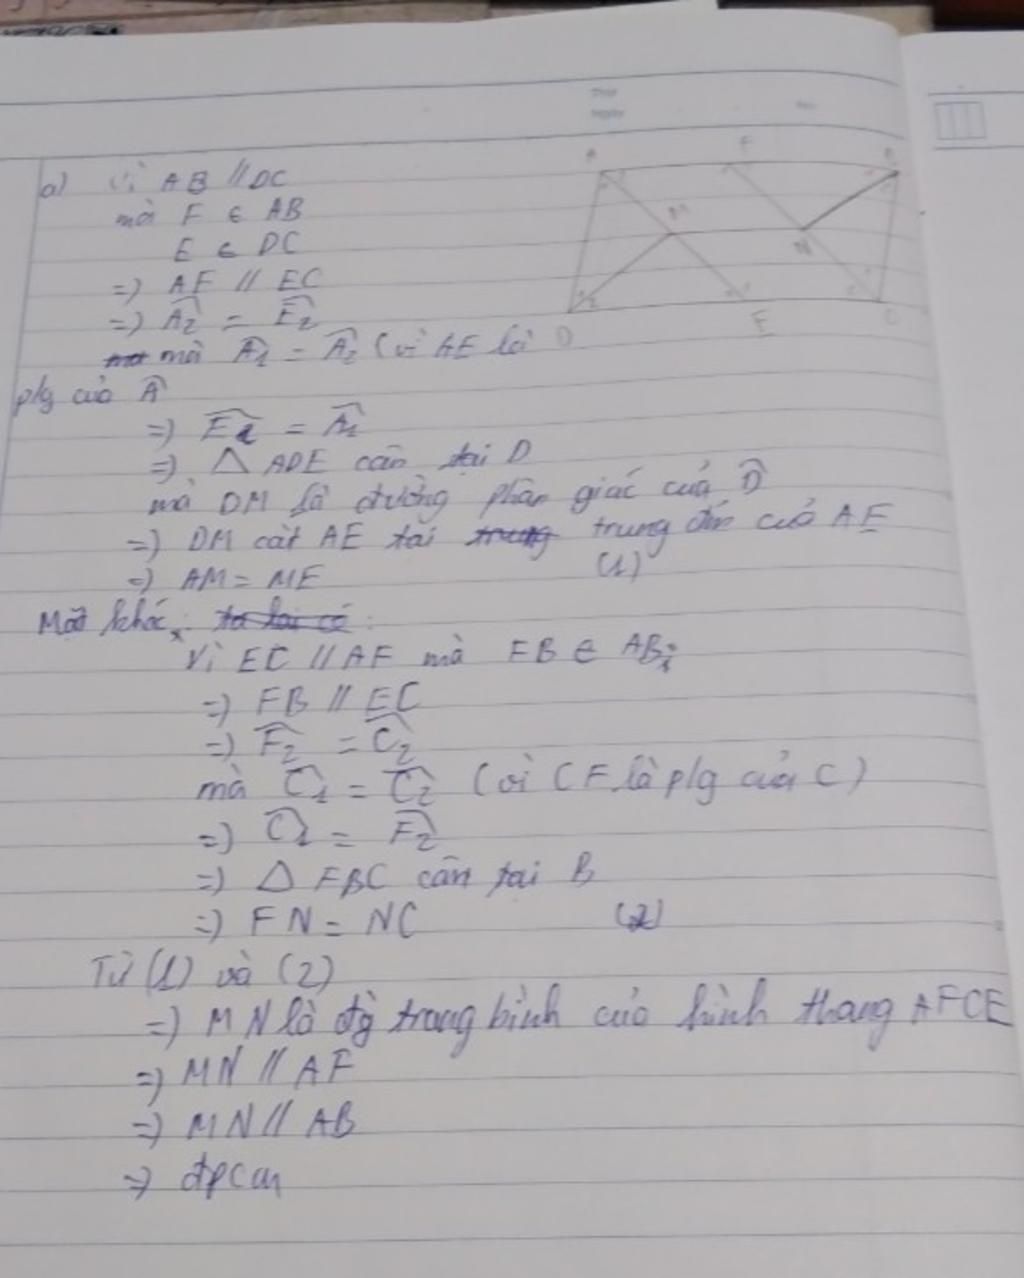 Thứ
Ngày
No.
A F B
M
N
D E C
a) Vì AB // DC
mà F ∈ AB
E ∈ DC
=) AF // EC
=) Â₂ = Ê₂
mà Â₁ = Â₂ (vì AE là
plg của Â
=) Ê₂ = Â₁
=) △ ADE cân tại D
mà DM là đường phân giác của D̂
=) DM cắt AE tại trung điểm của AE
=) AM = ME (1)
Mặt khác:
Vì EC // AF mà FB ∈ AB
=) FB // EC
=) F̂₂ = Ĉ₂
mà Ĉ₁ = Ĉ₂ (vì CF là plg của C)
=) Ĉ₁ = F̂₂
=) △ FBC cân tại B
=) FN = NC (2)
Từ (1) và (2)
=) MN là đg trung bình của hình thang AFCE
=) MN // AF
=) MN // AB
=) đpcm